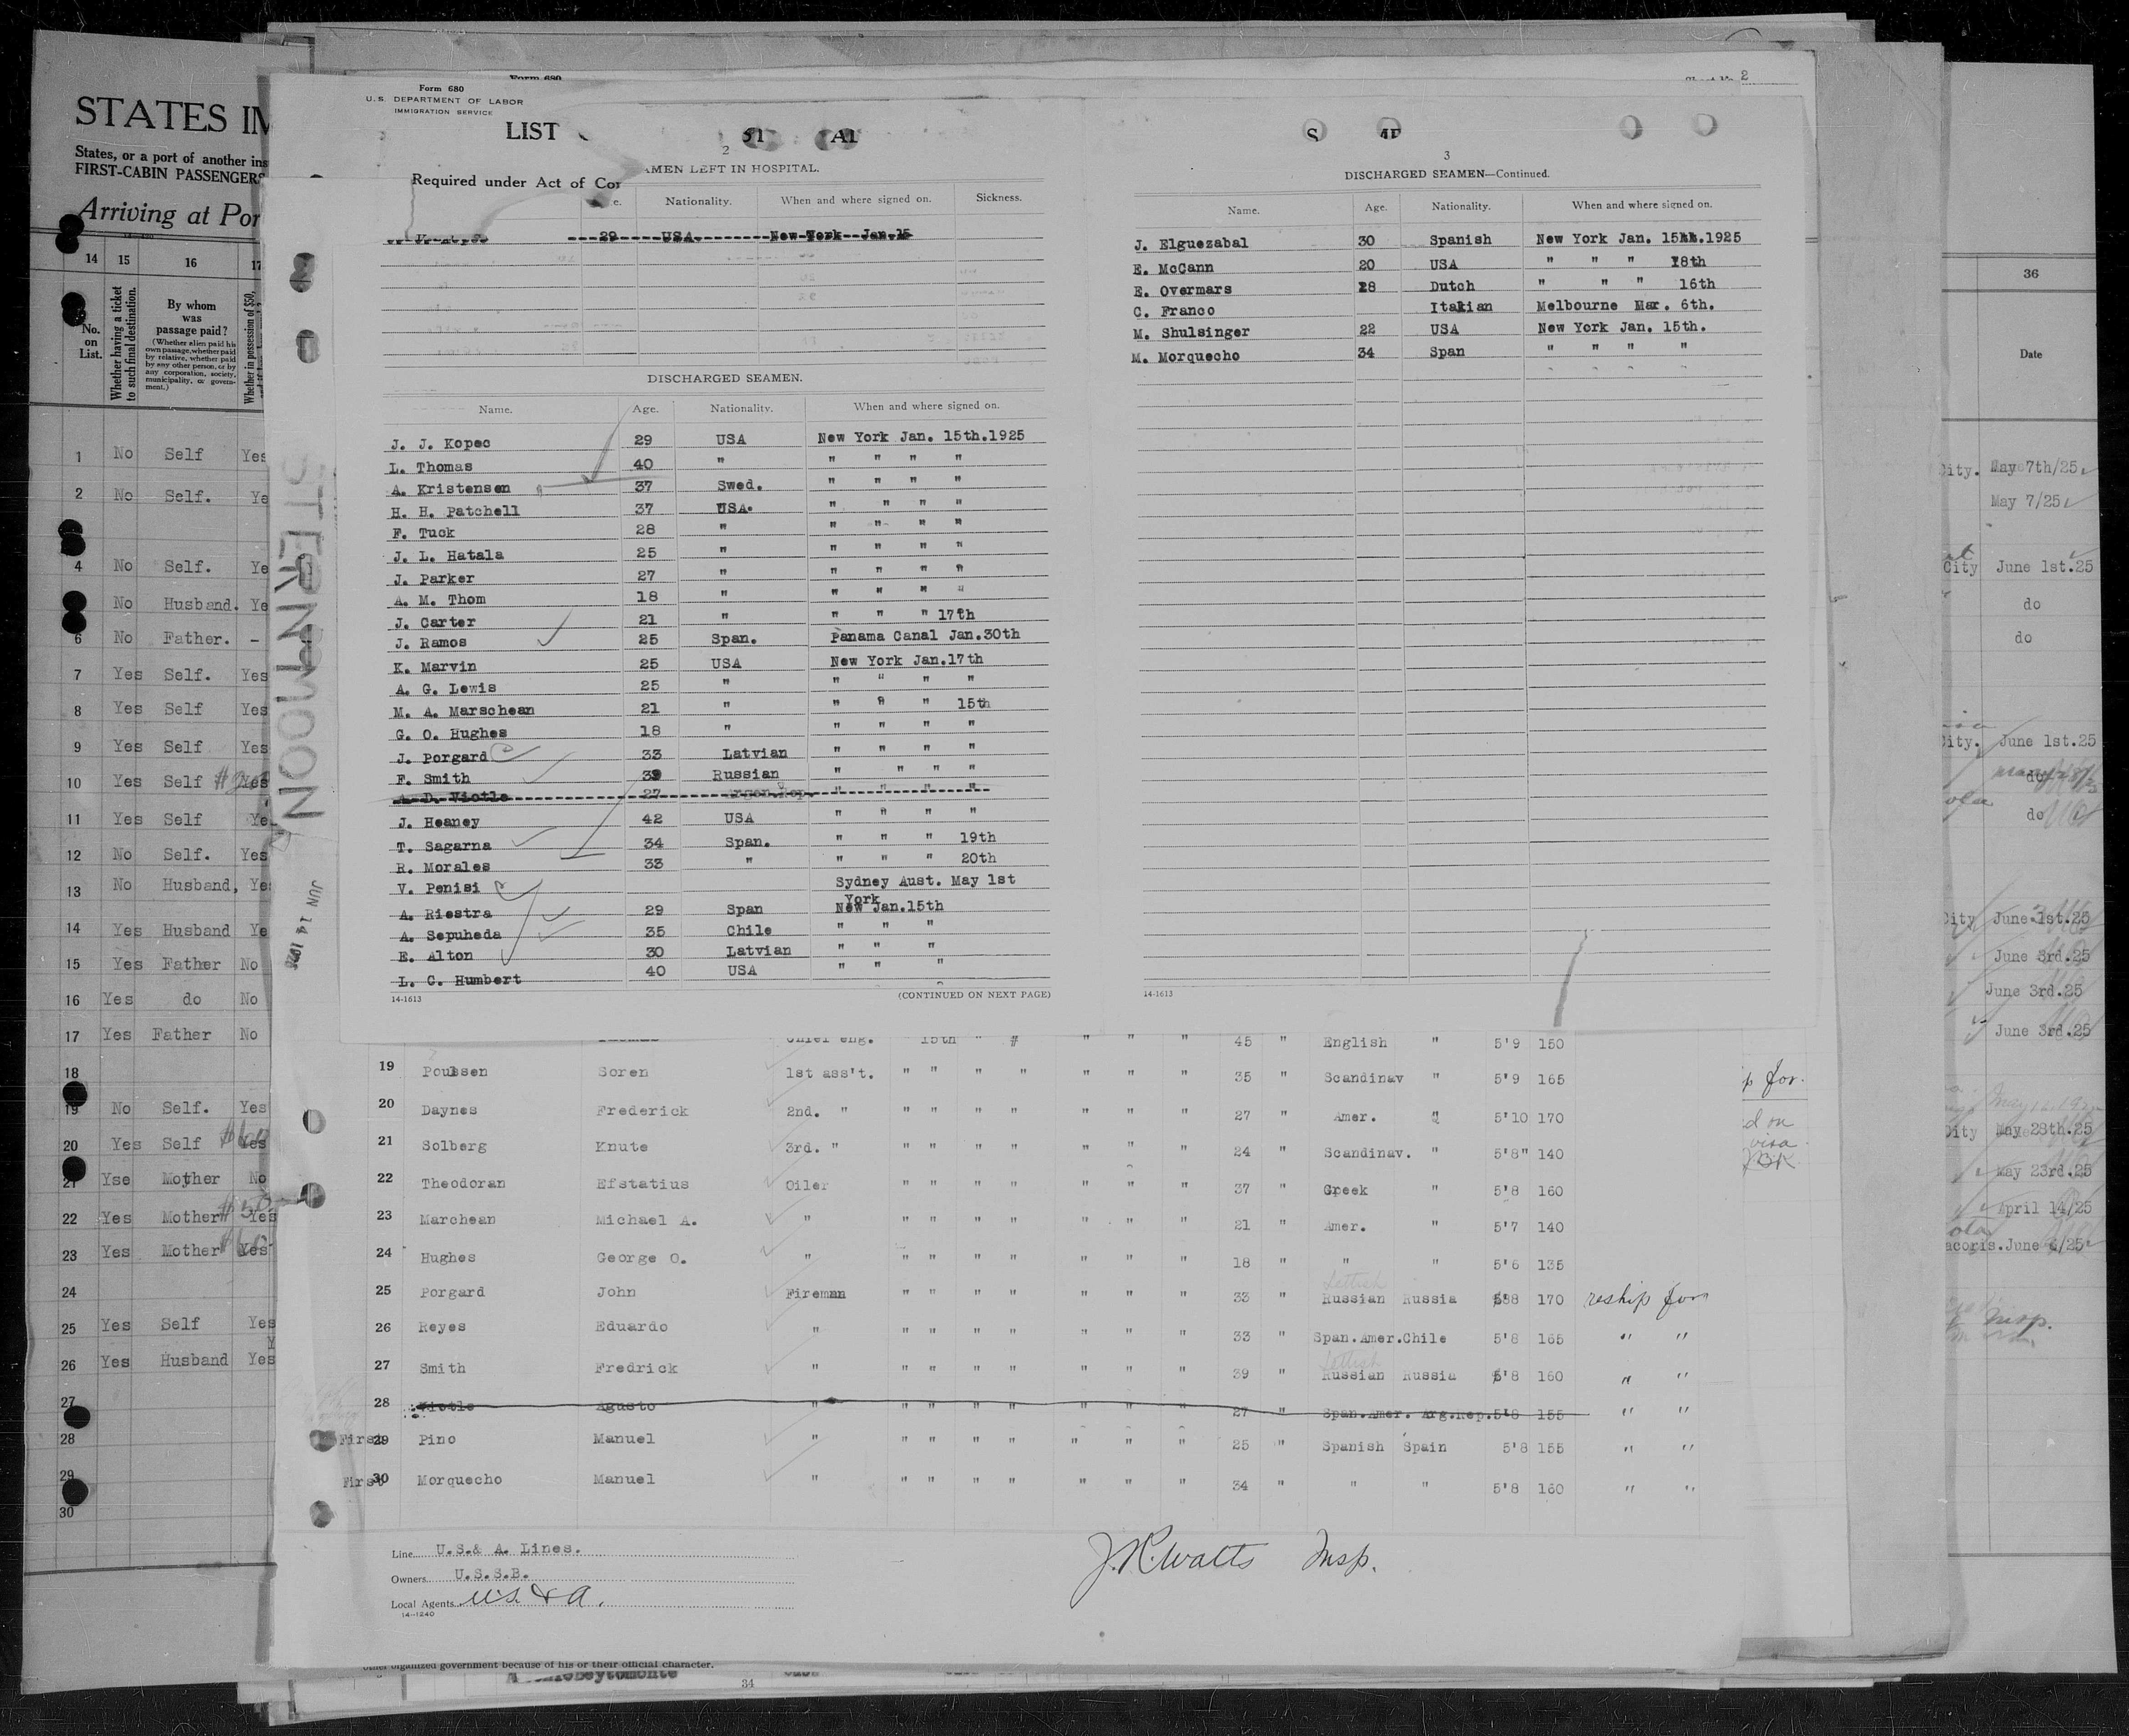 Form 680
U.S. DEPARTMENT OF LABOR
IMMIGRATION SERVICE
LIST
Required under Act of
2
AMEN LEFT IN HOSPITAL.
Nationality. When and where signed on. Sickness.
29 USA. New York Jan.15
DISCHARGED SEAMEN.
Name. Age. Nationality. When and where signed on.
J. J. Kopec 29 USA New York Jan. 15th.1925
L. Thomas 40 " " " " "
A. Kristensen 37 Swed. " " " "
H. H. Patchell 37 USA. " " " "
F. Tuck 28 " " " " "
J. L. Hatala 25 " " " " "
J. Parker 27 " " " " "
A. M. Thom 18 " " " " "
J. Carter 21 " " " " 17th
J. Ramos 25 Span. Panama Canal Jan.30th
K. Marvin 25 USA New York Jan.17th
A. G. Lewis 25 " " " " "
M. A. Marschean 21 " " " " 15th
G. O. Hughes 18 " " " " "
J. Porgard 33 Latvian " " " "
F. Smith 39 Russian " " " "
A. D. Viotle 27 Argen.Rep. " " " "
J. Heaney 42 USA " " " "
T. Sagarna 34 Span. " " " 19th
R. Morales 33 " " " " 20th
V. Penisi Sydney Aust. May 1st
A. Riestra 29 Span New York Jan.15th
A. Sepuheda 35 Chile " " "
E. Alton 30 Latvian " " "
L. C. Humbert 40 USA " " "
14-1613 (CONTINUED ON NEXT PAGE)
2
3
DISCHARGED SEAMEN—Continued.
Name. Age. Nationality. When and where signed on.
J. Elguezabal 30 Spanish New York Jan. 15th.1925
E. McCann 20 USA " " " 18th
E. Overmars 28 Dutch " " " 16th
C. Franco Italian Melbourne Mar. 6th.
M. Shulsinger 22 USA New York Jan. 15th.
M. Morquecho 34 Span " " " "
14-1613
Chief eng. 15th " # " " " 45 " English " 5'9 150
19 Poulsen Soren 1st ass't. " " " " " " " 35 " Scandinav " 5'9 165
20 Daynes Frederick 2nd. " " " " " " " " 27 " Amer. " 5'10 170
21 Solberg Knute 3rd. " " " " " " " " 24 " Scandinav. " 5'8" 140
22 Theodoran Efstatius Oiler " " " " " " " 37 " Greek " 5'8 160
23 Marchean Michael A. " " " " " " " " 21 " Amer. " 5'7 140
24 Hughes George O. " " " " " " " " 18 " " " 5'6 135
25 Porgard John Fireman " " " " " " " 33 " Lettish Russian Russia 5'8 170 reship for
26 Reyes Eduardo " " " " " " " " 33 " Span.Amer.Chile 5'8 165 " "
27 Smith Fredrick " " " " " " " " 39 " Lettish Russian Russia 5'8 160 " "
28 Viotle Agusto " " " " " " " " 27 " Span.Amer. Arg.Rep. 5'8 155 " "
First 29 Pino Manuel " " " " " " " " 25 " Spanish Spain 5'8 155 " "
First 30 Morquecho Manuel " " " " " " " " 34 " " " 5'8 160 " "
Line U.S.& A. Lines.
Owners U.S.S.B.
Local Agents U.S. & A.
14-1240
J.R. Watts Insp.
other organized government because of his or their official character.
34
STERNMOON
JUN 14 192
STATES IM
States, or a port of another ins
FIRST-CABIN PASSENGERS
Arriving at Por
14 15 16 17
No. on List.
Whether having a ticket to such final destination.
By whom was passage paid?
(Whether alien paid his own passage, whether paid by relative, whether paid by any other person, or by any corporation, society, municipality, or government.)
Whether in possession of $50,
1 No Self Yes
2 No Self. Ye
4 No Self. Ye
No Husband. Ye
6 No Father. -
7 Yes Self. Yes
8 Yes Self Yes
9 Yes Self Yes
10 Yes Self Yes
11 Yes Self Ye
12 No Self. Yes
13 No Husband, Ye
14 Yes Husband Ye
15 Yes Father No
16 Yes do No
17 Yes Father No
18
19 No Self. Yes
20 Yes Self Yes
21 Yse Mother No
22 Yes Mother Yes
23 Yes Mother Yes
24
25 Yes Self Yes
26 Yes Husband Yes
27
28
29
30
36
Date
City. May 7th/25
May 7/25
City June 1st.25
do
do
City. June 1st.25
do
do
City June 1st.25
June 3rd.25
June 3rd.25
June 3rd.25
p for
d on
visa
City May 28th.25
May 23rd.25
April 14/25
acoris. June 6/25
Insp.